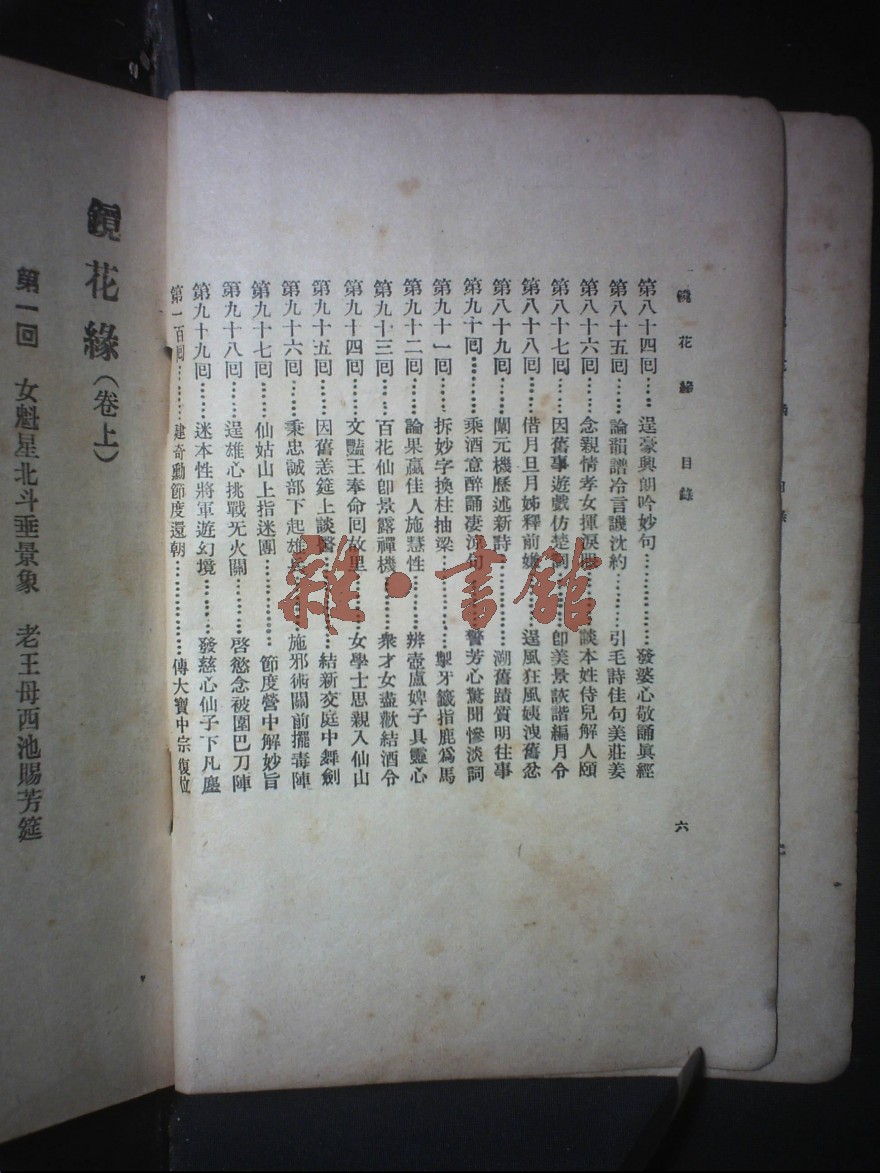 鏡花緣　目錄　六
第八十四回……逞豪興朗吟妙句……發婆心敬誦眞經
第八十五回……論韻譜冷言譏沈約……引毛詩佳句美莊姜
第八十六回……念親情孝女揮淚眼……談本姓侍兒解人頤
第八十七回……因舊事遊戲仿楚詞……卽美景詼諧編月令
第八十八回……借月旦月姊釋前嫌……逞風狂風姨洩舊忿
第八十九回……闡元機歷述新詩……溯舊蹟質明往事
第九十回……乘酒意醉誦凄涼句……警芳心驚聞慘淡詞
第九十一回……拆妙字換柱抽梁……掣牙籤指鹿爲馬
第九十二回……論果蠃佳人施慧性……辨壺盧婢子具靈心
第九十三回……百花仙卽景露禪機……衆才女盡歡結酒令
第九十四回……文豔王奉命回故里……女學士思親入仙山
第九十五回……因舊恙筵上談醫……結新交庭中舞劍
第九十六回……秉忠誠部下起雄兵……施邪術關前擺毒陣
第九十七回……仙姑山上指迷團……節度營中解妙旨
第九十八回……逞雄心挑戰无火關……啓慾念被圍巴刀陣
第九十九回……迷本性將軍遊幻境……發慈心仙子下凡塵
第一百回……建奇勳節度還朝……傳大寶中宗復位
鏡花緣（卷上）
第一回　女魁星北斗垂景象　老王母西池賜芳筵
雜·書館